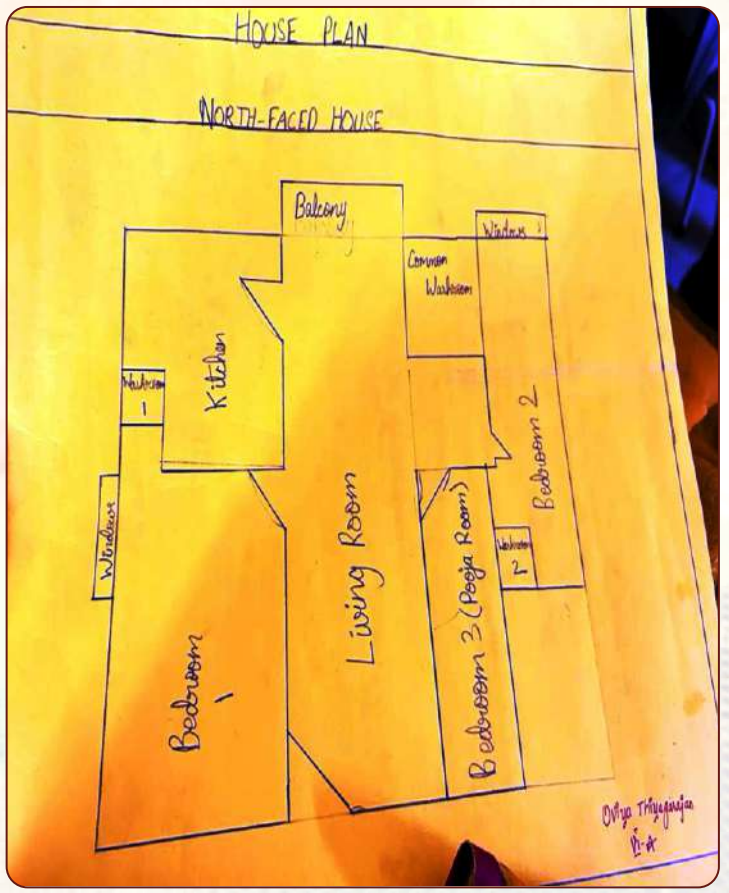 HOUSE PLAN
NORTH-FACED HOUSE
Balcony
Windows
Common
Washroom
Kitchen
Washroom
1
Windows
Bedroom 2
Living Room
Bedroom 3 (Pooja Room)
Washroom
2
Bedroom
1
Oviya Thiyagarajan
VI-A